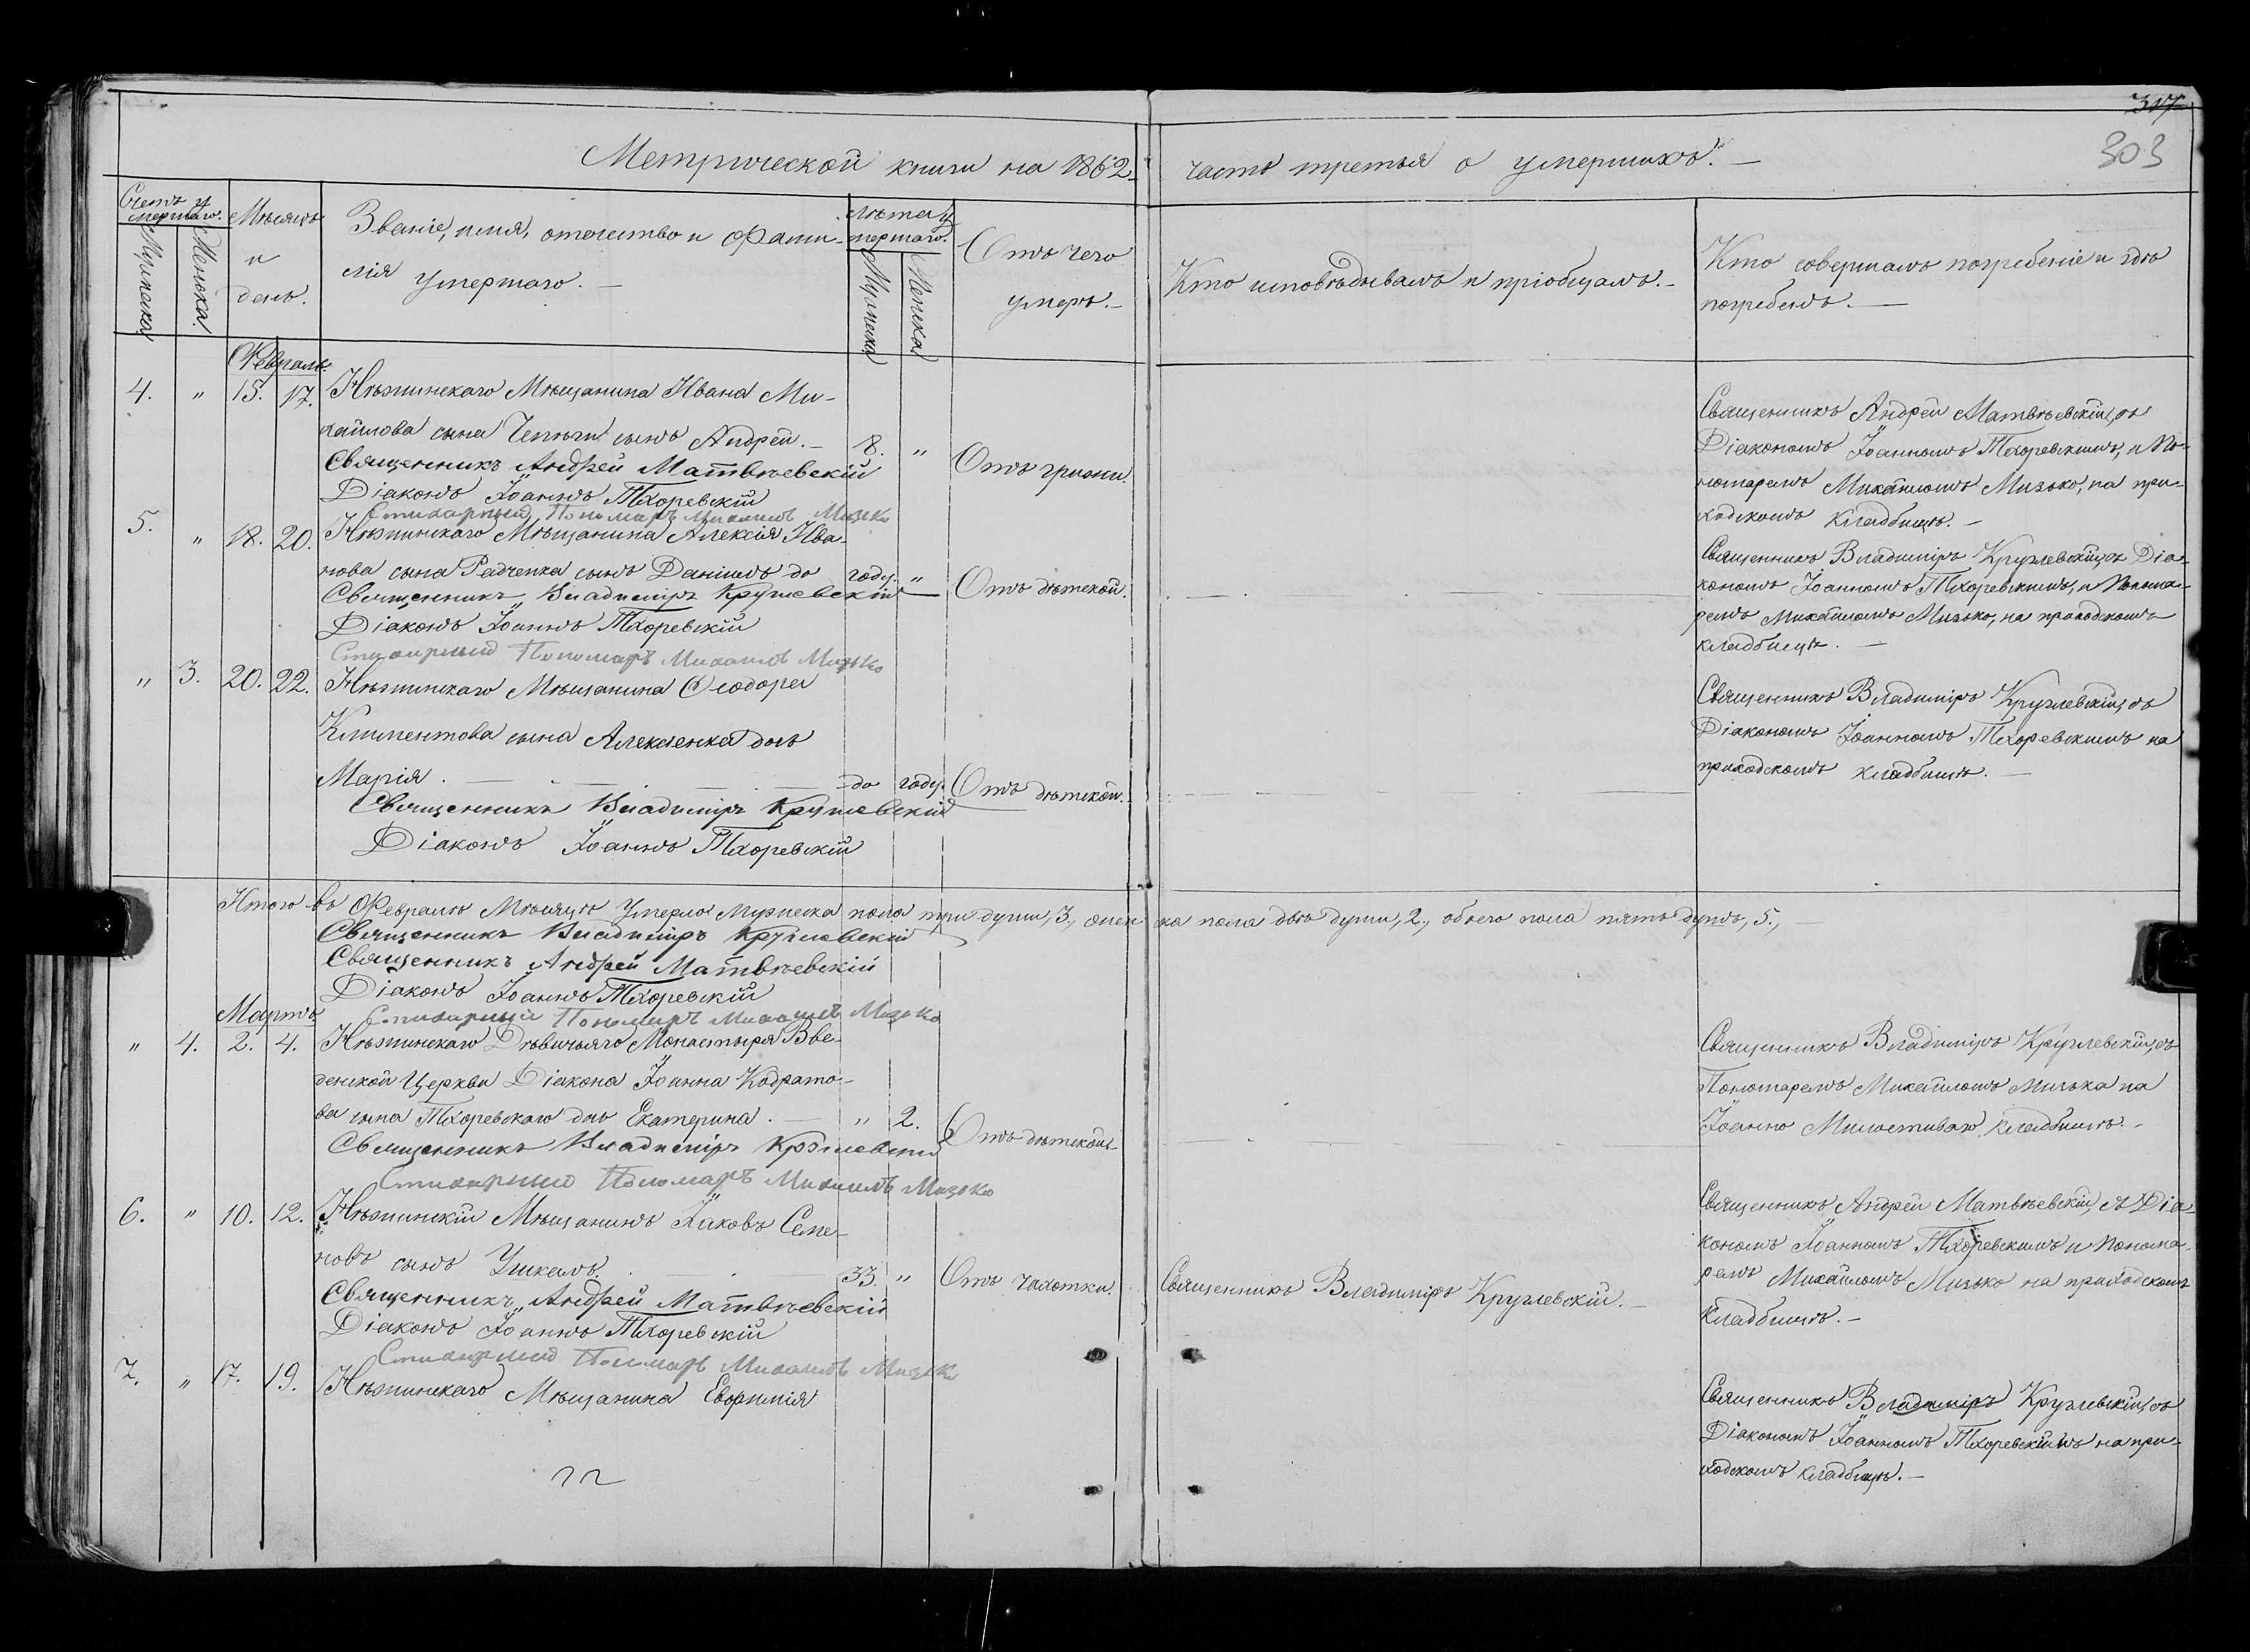 317
303
Метрической книги на 1862 часть третья о умершихъ. —
Счетъ у
мершаго.
Мужеска
Женска.
Мѣсяцъ
и
день.
Званіе, имя, отечество и фами-
лія умершаго. —
лѣта у
мершаго.
Мужеска
Женска
Отъ чего
умеръ. —
Кто исповѣдывалъ и пріобщалъ. —
Кто совершалъ погребеніе и гдѣ
погребенъ. —
Февраль.
4. " 15. 17. Нѣжинскаго Мѣщанина Ивана Ми-
хайлова сына Чепѣги сынъ Андрей. — 8. " Отъ грижи.
Священникъ Андрей Матвѣевскій
Діаконъ Іоаннъ Тхоревскій
Стихарный Пономарь Михаилъ Мизько
Священникъ Андрей Матвѣевскій, съ
Діакономъ Іоанномъ Тхоревскимъ, и По-
номаремъ Михайломъ Мизько, на при-
ходскомъ кладбищѣ. —
5. " 18. 20. Нѣжинскаго Мѣщанина Алексія Ива-
нова сына Радченка сынъ Даніилъ до году. " Отъ дѣтской.
Священникъ Владиміръ Круглевскій
Діаконъ Іоаннъ Тхоревскій
Стихарный Пономарь Михаилъ Мизько
Священникъ Владиміръ Круглевскій, съ Діа-
кономъ Іоанномъ Тхоревскимъ, и Понома-
ремъ Михайломъ Мизько, на приходскомъ
кладбищѣ. —
" 3. 20. 22. Нѣжинскаго Мѣщанина Ѳеодора
Климентова сына Алексенка дочь
Марія. — до году. Отъ дѣтской.
Священникъ Владиміръ Круглевскій
Діаконъ Іоаннъ Тхоревскій
Священникъ Владиміръ Круглевскій, съ
Діакономъ Іоанномъ Тхоревскимъ на
приходскомъ кладбищѣ. —
Итого въ Февралѣ Мѣсяцѣ Умерло Мужеска пола три души, 3., женска пола двѣ души, 2., обоего пола пять душъ, 5., —
Священникъ Владиміръ Круглевскій
Священникъ Андрей Матвѣевскій
Діаконъ Іоаннъ Тхоревскій
Стихарный Пономарь Михаилъ Мизько
Мартъ
" 4. 2. 4. Нѣжинскаго Дѣвичьяго Монастыря Вве-
денской Церкви Діакона Іоанна Кодрато-
ва сына Тхоревскаго дочь Екатерина. — " 2. Отъ дѣтской.
Священникъ Владиміръ Круглевскій
Стихарный Пономарь Михаилъ Мизько
Священникъ Владиміръ Круглевскій, съ
Пономаремъ Михайломъ Мизька на
Іоанно Милостиваго кладбищѣ. —
6. " 10. 12. Нѣжинскій Мѣщанинъ Іаковъ Семе-
новъ сынъ Ушкалъ. — 33. " Отъ чахотки. Священникъ Владиміръ Круглевскій. —
Священникъ Андрей Матвѣевскій
Діаконъ Іоаннъ Тхоревскій
Стихарный Пономарь Михаилъ Мизько
Священникъ Андрей Матвѣевскій, съ Діа-
кономъ Іоанномъ Тхоревскимъ и Понома-
ремъ Михайломъ Мизько на приходскомъ
кладбищѣ. —
7. " 17. 19. Нѣжинскаго Мѣщанина Евфимія
Священникъ Владиміръ Круглевскій, съ
Діакономъ Іоанномъ Тхоревскимъ на при-
ходскомъ кладбищѣ. —